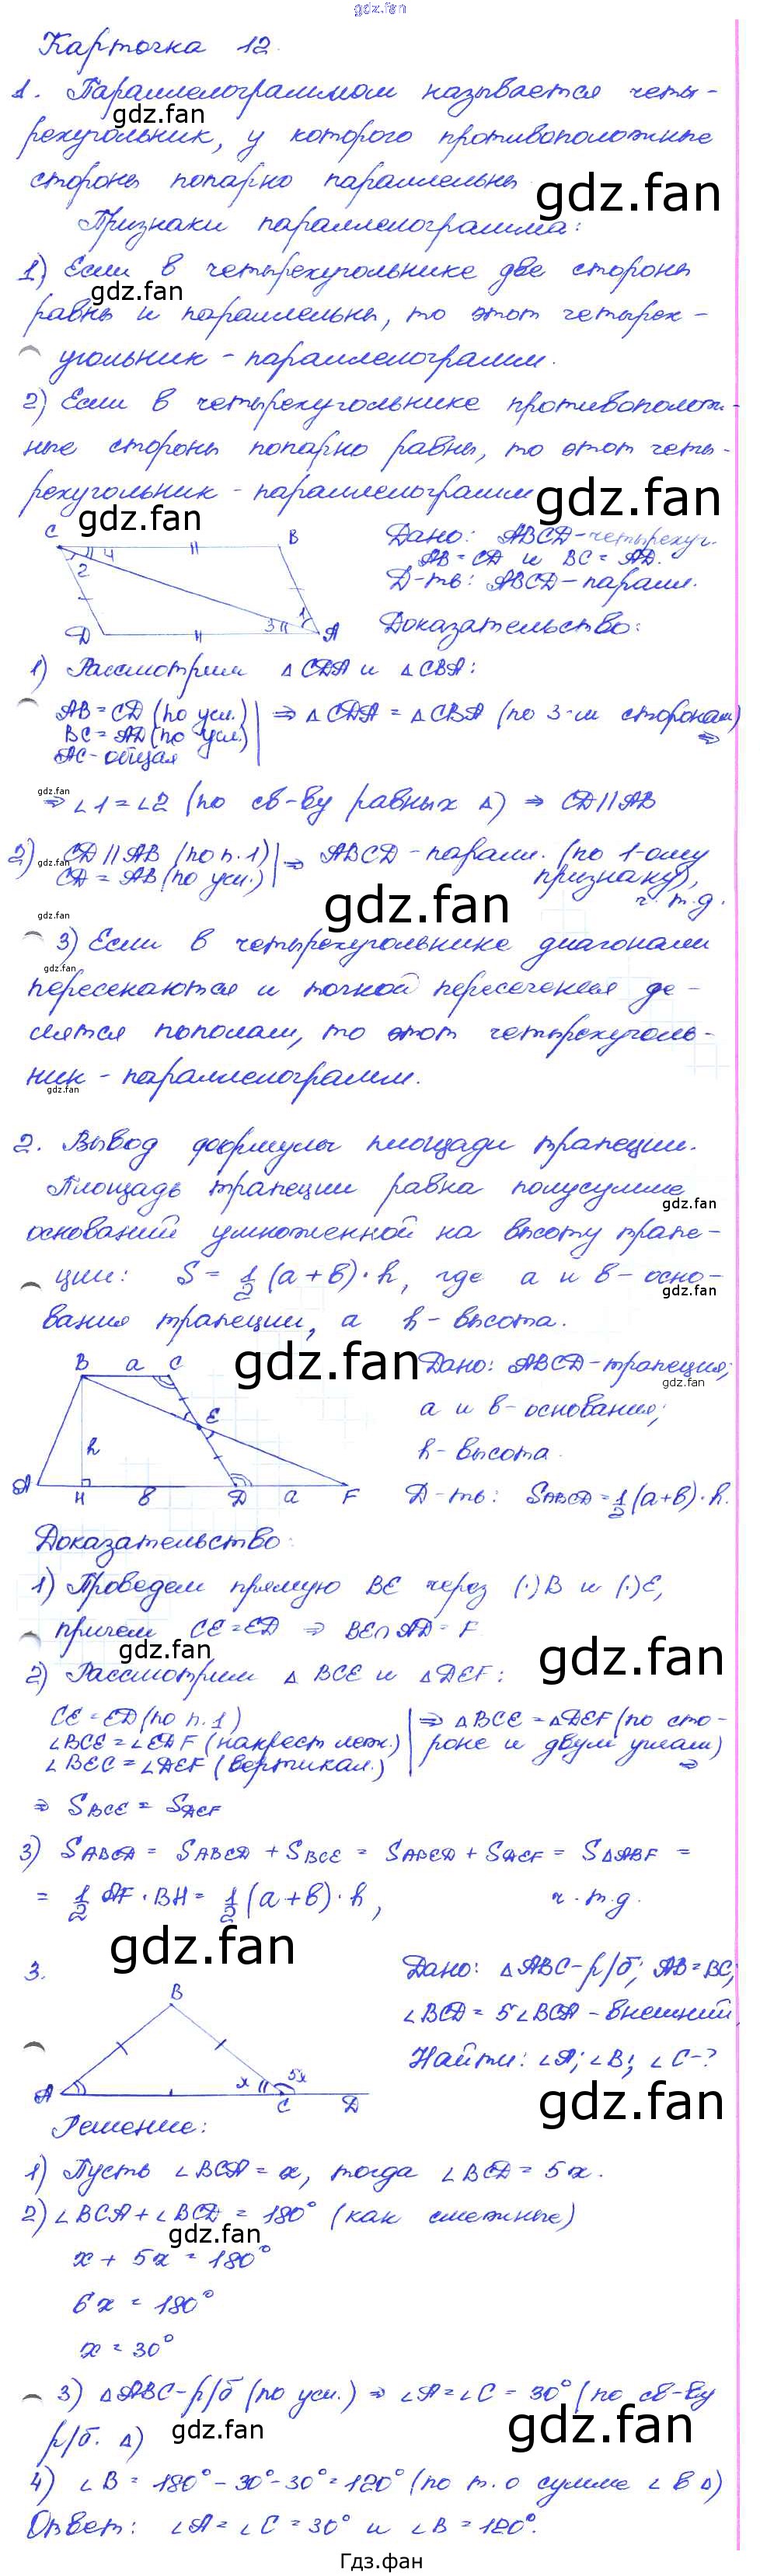 gdz.fan
Карточка 12.
1. Параллелограммом называется четы-
gdz.fan
рехугольник, у которого противоположные
стороны попарно параллельны
gdz.fan
Признаки параллелограмма:
1) Если в четырехугольнике две стороны
gdz.fan
равны и параллельны, то этот четырех-
угольник - параллелограмм.
2) Если в четырехугольнике противополож-
ные стороны попарно равны, то этот четы-
рехугольник - параллелограмм
gdz.fan
gdz.fan
C 4 B
2
D 3 1 A
Дано: ABCD - четырехуг.
AB = CD и BC = AD.
Д-ть: ABCD - паралл.
Доказательство:
1) Рассмотрим △CDA и △CBA:
AB = CD (по усл.) | ⇒ △CDA = △CBA (по 3-м сторонам)
BC = AD (по усл.) ⇒
AC - общая
gdz.fan
⇒ ∠1 = ∠2 (по св-ву равных △) ⇒ CD || AB
2) CD || AB (по п. 1) | ⇒ ABCD - паралл. (по 1-ому
gdz.fan
CD = AB (по усл.) | признаку),
gdz.fan
ч.т.д.
gdz.fan
3) Если в четырехугольнике диагонали
gdz.fan
пересекаются и точкой пересечения де-
лятся пополам, то этот четырехуголь-
ник - параллелограмм.
gdz.fan
2. Вывод формулы площади трапеции.
Площадь трапеции равна полусумме
gdz.fan
оснований умноженной на высоту трапе-
ции: S = 1/2 (a + b) · h, где a и b - осно-
gdz.fan
вания трапеции, а h - высота.
gdz.fan
B a C
E
h
A H b D a F
Дано: ABCD - трапеция;
gdz.fan
a и b - основания;
h - высота.
Д-ть: SABCD = 1/2 (a+b) · h.
Доказательство:
1) Проведем прямую BE через (·)B и (·)E,
причем CE = ED ⇒ BE ∩ AD = F
gdz.fan
gdz.fan
2) Рассмотрим △BCE и △DEF:
CE = ED (по п. 1) | ⇒ △BCE = △DEF (по сто-
∠BCE = ∠EDF (накрест леж.) | роне и двум углам)
∠BEC = ∠DEF (вертикал.) | ⇒
⇒ SBCE = SDEF
3) SABCD = SABED + SBCE = SABED + SDEF = S△ABF =
= 1/2 AF · BH = 1/2 (a + b) · h, ч.т.д.
gdz.fan
3.
B
A x 5x C D
Дано: △ABC - р/б; AB = BC;
∠BCD = 5∠BCA - внешний,
Найти: ∠A; ∠B; ∠C - ?
gdz.fan
Решение:
1) Пусть ∠BCA = x, тогда ∠BCD = 5x.
2) ∠BCA + ∠BCD = 180° (как смежные)
gdz.fan
x + 5x = 180°
6x = 180°
x = 30°
3) △ABC - р/б (по усл.) ⇒ ∠A = ∠C = 30° (по св-ву
gdz.fan
gdz.fan
р/б. △)
4) ∠B = 180° - 30° - 30° = 120° (по т. о сумме ∠ в △)
Ответ: ∠A = ∠C = 30° и ∠B = 120°.
Гдз.фан